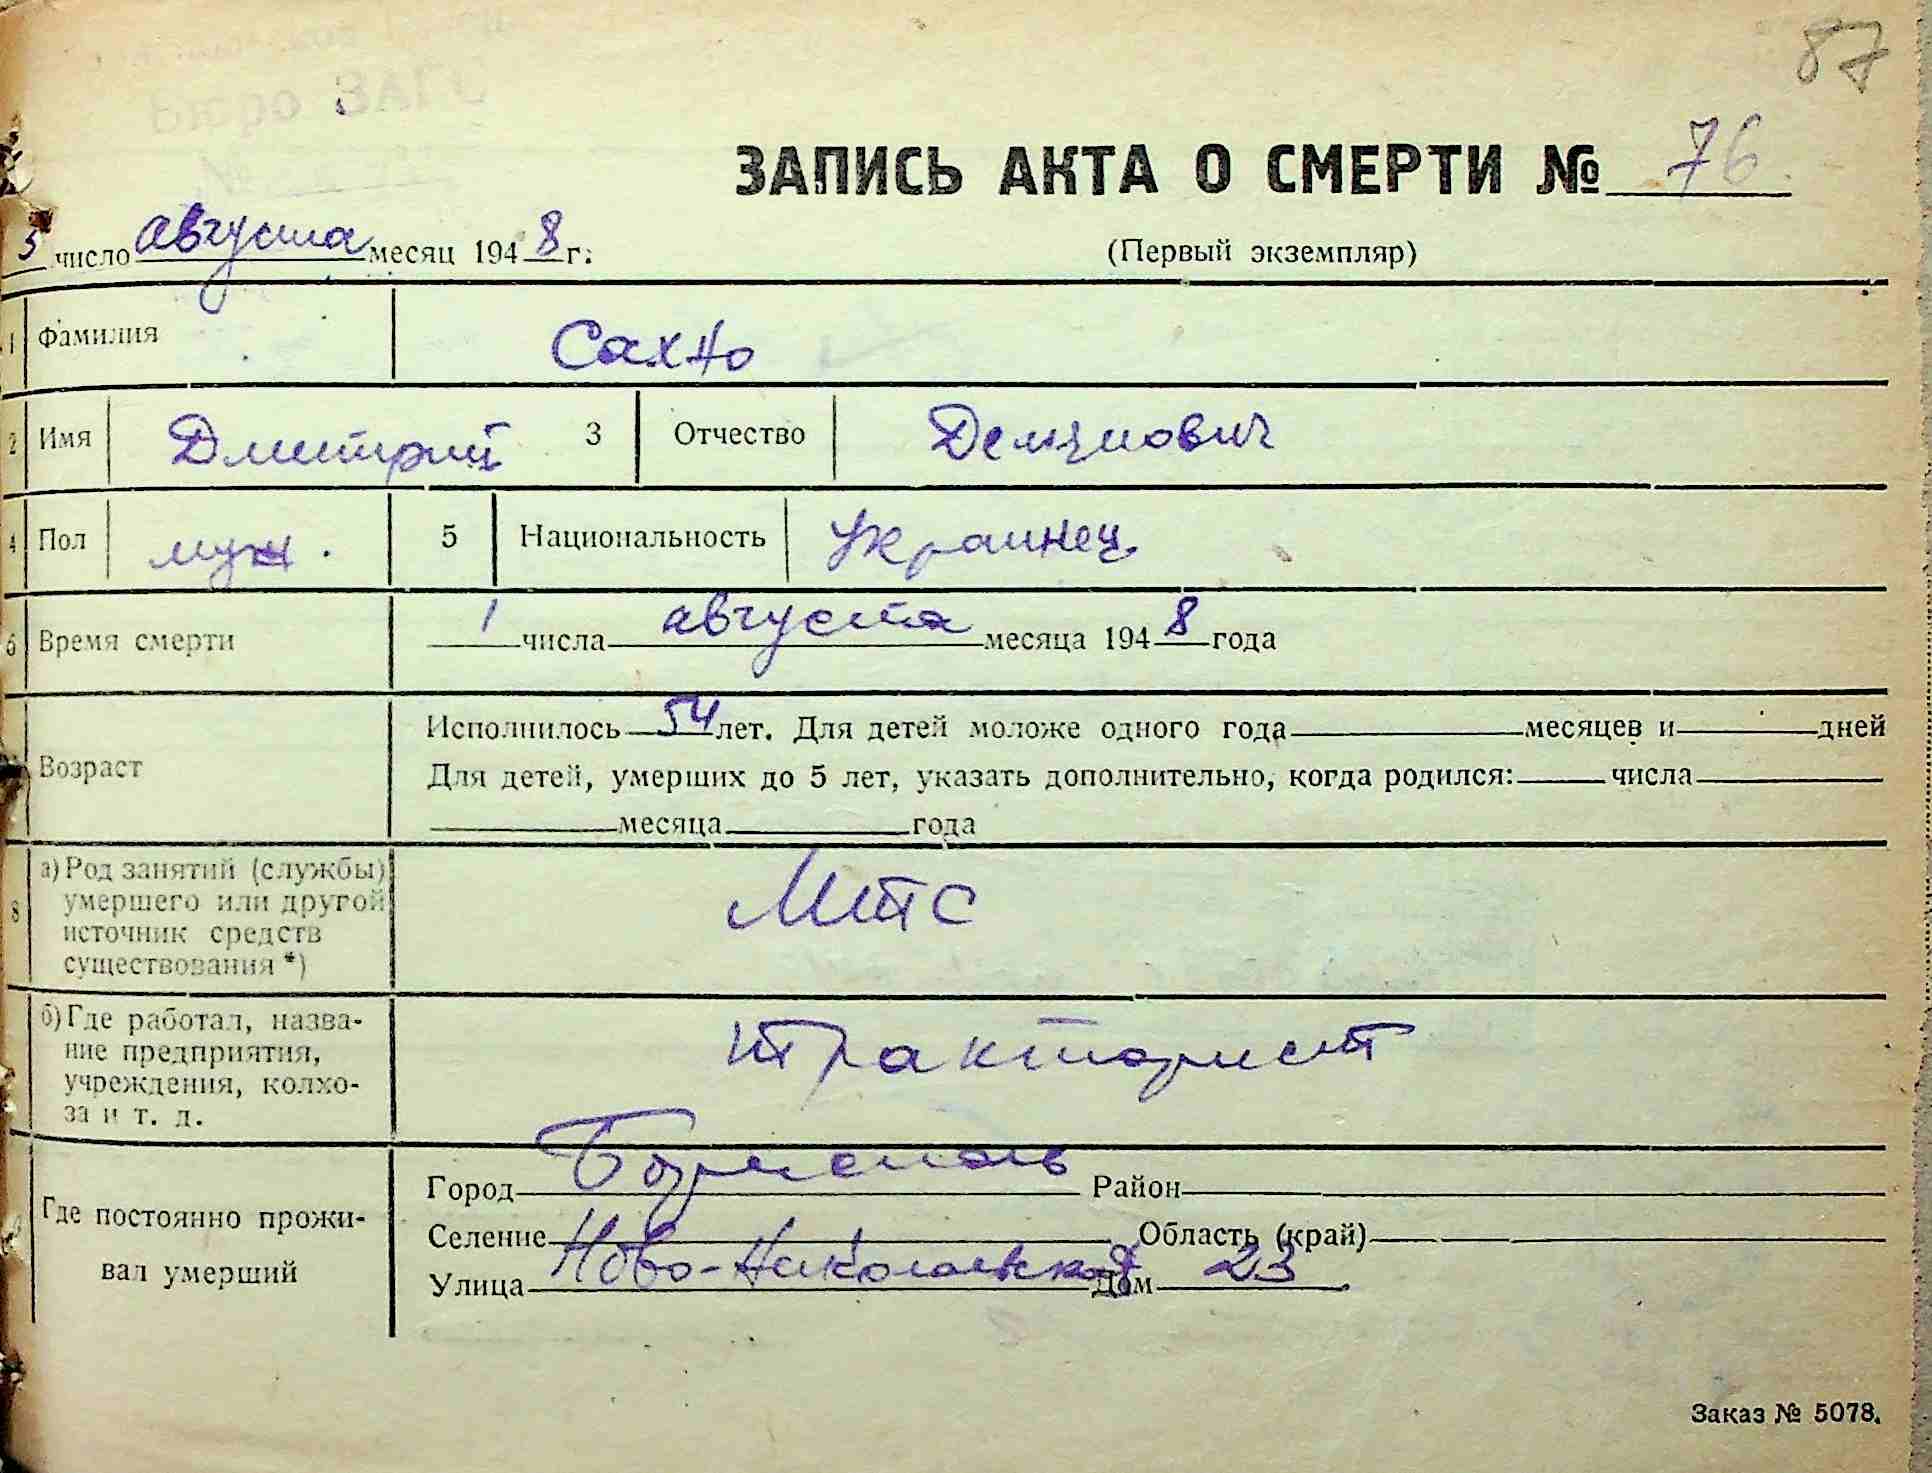 87
ЗАПИСЬ АКТА О СМЕРТИ № 76
5 число августа месяц 1948 г.
(Первый экземпляр)
1 Фамилия Сахно
2 Имя Дмитрий 3 Отчество Демянович
4 Пол муж. 5 Национальность Украинец
6 Время смерти 1 числа августа месяца 1948 года
Возраст
Исполнилось 54 лет. Для детей моложе одного года месяцев и дней
Для детей, умерших до 5 лет, указать дополнительно, когда родился: числа
месяца года
8 а) Род занятий (службы)
умершего или другой
источник средств
существования *)
МТС
б) Где работал, назва-
ние предприятия,
учреждения, колхо-
за и т. д.
тракторист
Где постоянно прожи-
вал умерший
Город Борисполь Район
Селение Область (край)
Улица Ново-Николаевская Дом 23
Заказ № 5078.